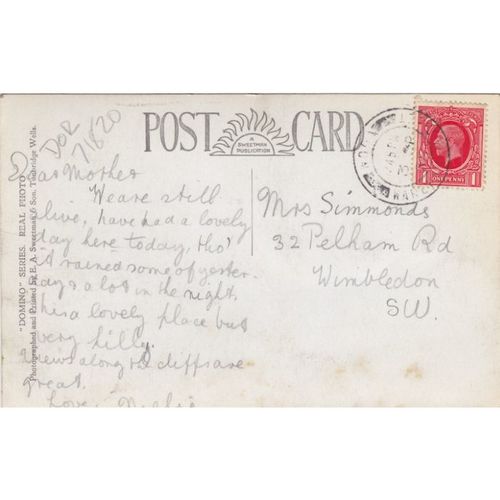 POST CARD
A
SWEETMAN
PUBLICATION
ONE PENNY
"DOMINO" SERIES. REAL PHOTO
Photographed and Printed by E. A. Sweetman & Son, Tunbridge Wells.
DOR
71620
Dear Mother
We are still
alive, have had a lovely
day here today, tho'
it rained some of yester-
day & a lot in the night.
This a lovely place but
very hilly.
Views along the cliffs are
great.
Love,
Mrs Simmonds
32 Pelham Rd
Wimbledon
SW.